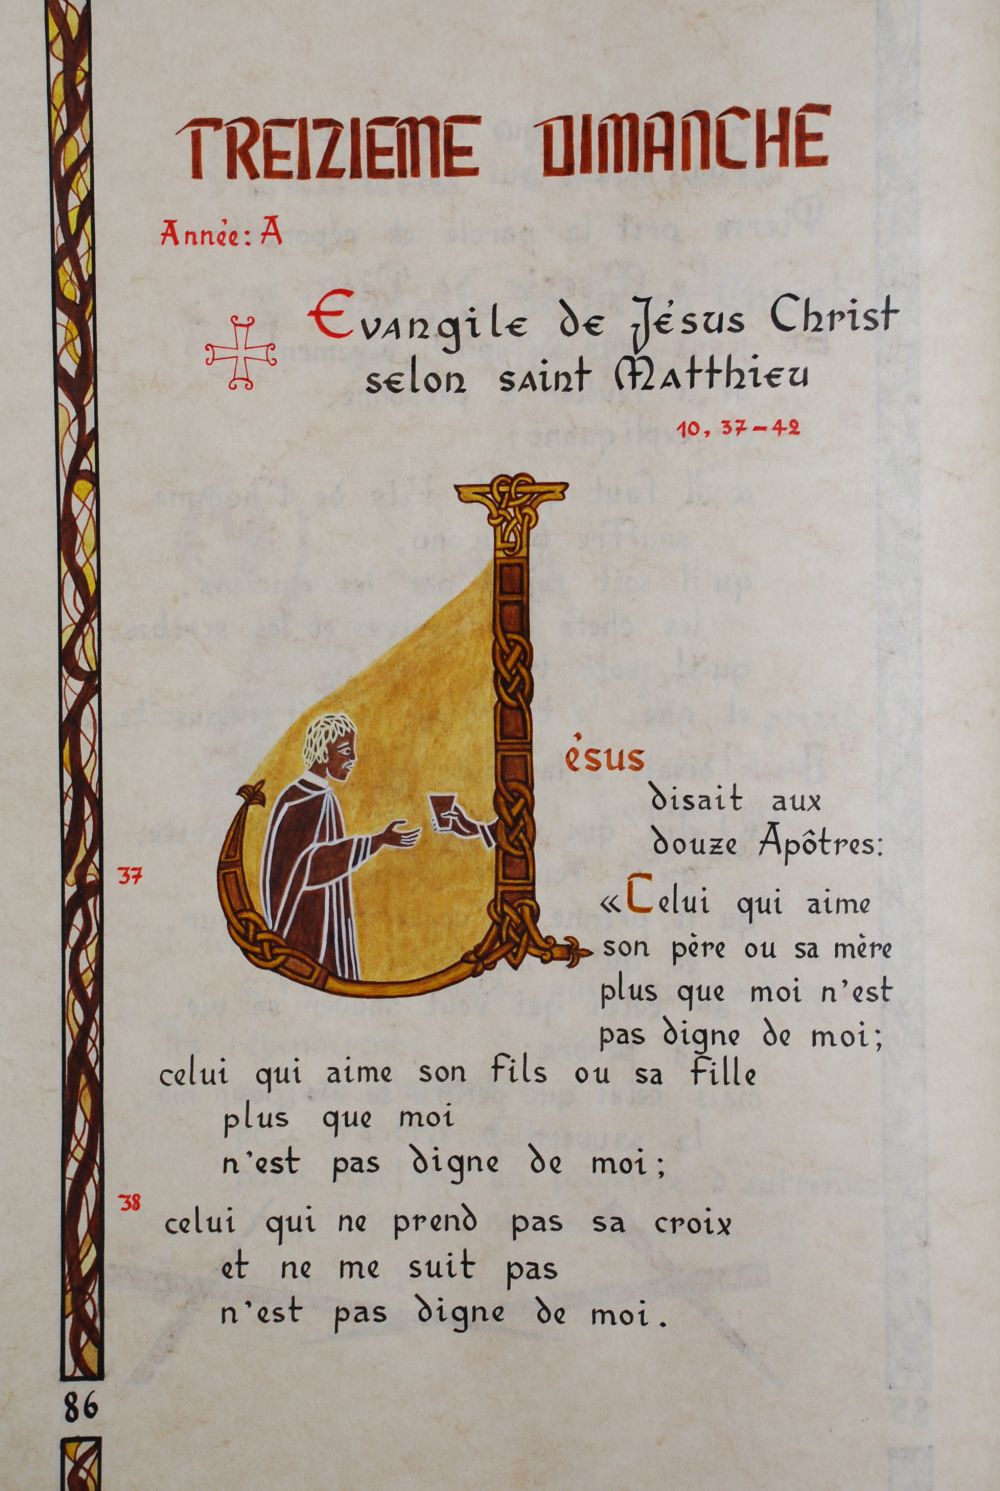 TREIZIEME DIMANCHE
Année: A
Evangile de Jésus Christ
selon saint Matthieu
10, 37-42
Jésus
disait aux
douze Apôtres:
37
«Celui qui aime
son père ou sa mère
plus que moi n'est
pas digne de moi;
celui qui aime son fils ou sa fille
plus que moi
n'est pas digne de moi;
38
celui qui ne prend pas sa croix
et ne me suit pas
n'est pas digne de moi.
86